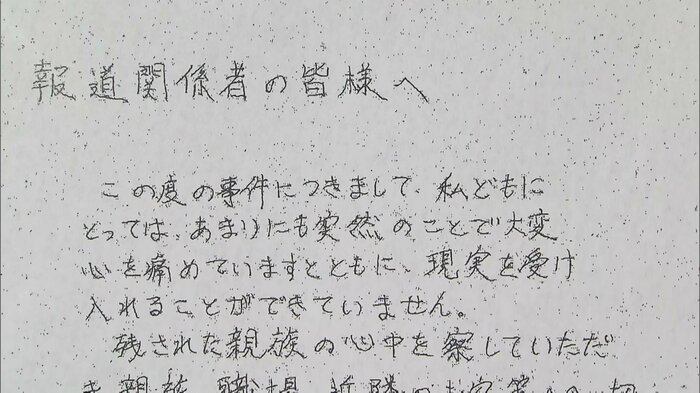 報道関係者の皆様へ
この度の事件につきまして、私どもに
とっては、あまりにも突然のことで大変
心を痛めていますとともに、現実を受け
入れることができていません。
残された親族の心中を察していただ
き親族、職場、近隣の